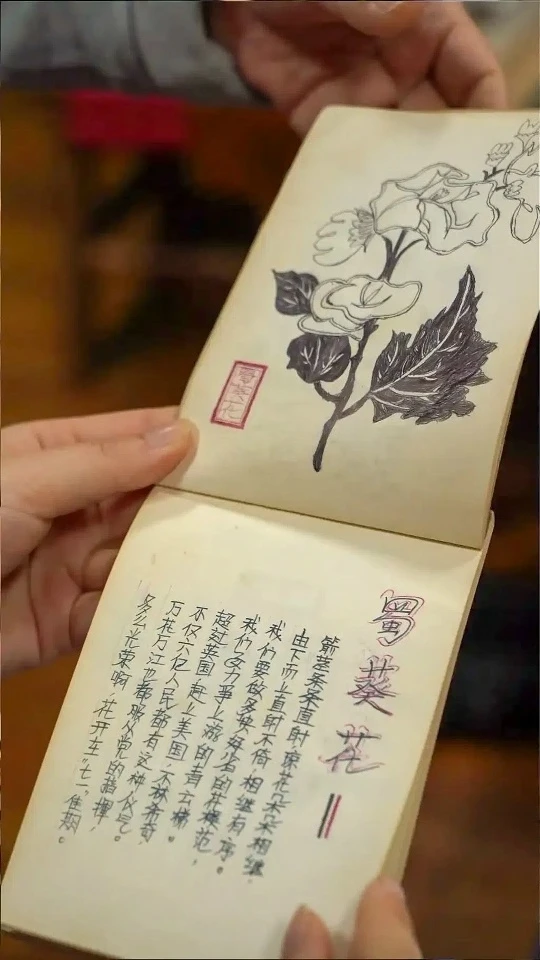 蜀葵花
蜀葵花
箭茎条条直射,琼花朵朵相继,
由下而上直射不倚,相继有序。
我们要做多快好省的花模范,
我们要力争上游的青云梯。
超过英国,赶上美国,不希奇,
不仅六亿人民都有这种气。
万花万汇也都服从党的指挥,
多么光荣啊,花开在"七一"佳期。